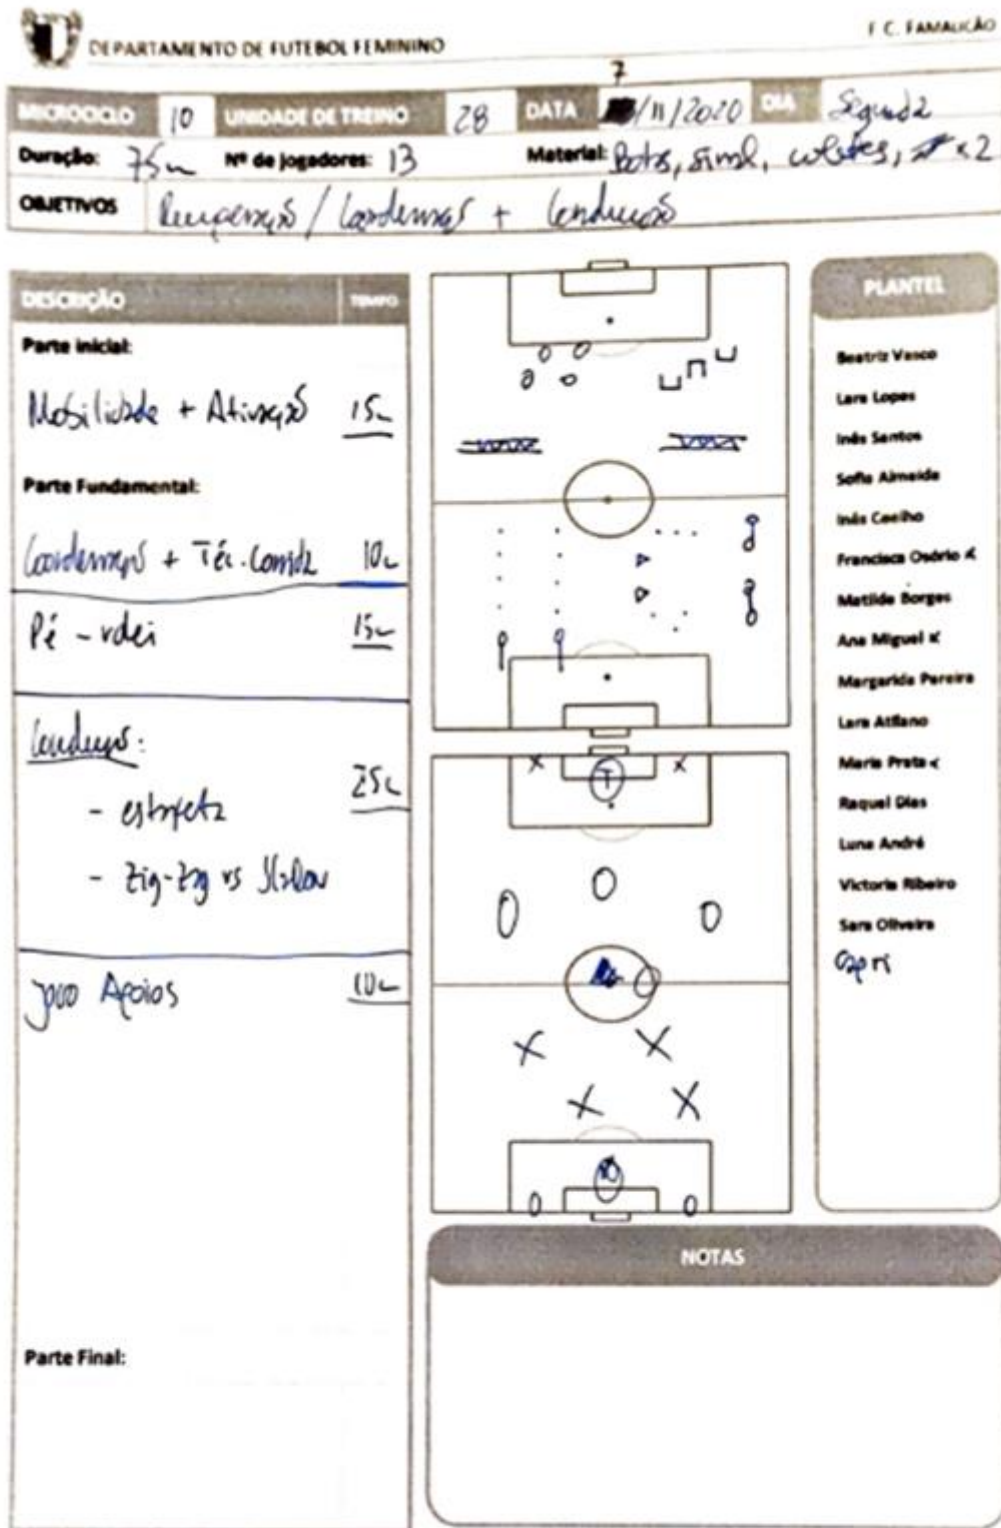 DEPARTAMENTO DE FUTEBOL FEMININO
F. C. FAMALICÃO
MICROCICLO 10 UNIDADE DE TREINO 28 DATA 7/11/2020 DIA Segunda
Duração: 75m Nº de jogadores: 13 Material: Bolas, sinal, coletes, x2
OBJETIVOS Recuperação / Coordenação + Condução
DESCRIÇÃO TEMPO
Parte inicial:
Mobilidade + Ativação 15m
Parte Fundamental:
Coordenação + Téc. Corrida 10m
Pé - volei 15m
Condução:
25m
- estafeta
- Zig-Zag vs Slalom
Jogo Apoios 10m
Parte Final:
T
PLANTEL
Beatriz Vasco
Lara Lopes
Inês Santos
Sofia Almeida
Inês Coelho
Francisca Osório x
Matilde Borges
Ana Miguel x
Margarida Pereira
Lara Atilano
Maria Prata x
Raquel Dias
Luna André
Victoria Ribeiro
Sara Oliveira
NOTAS